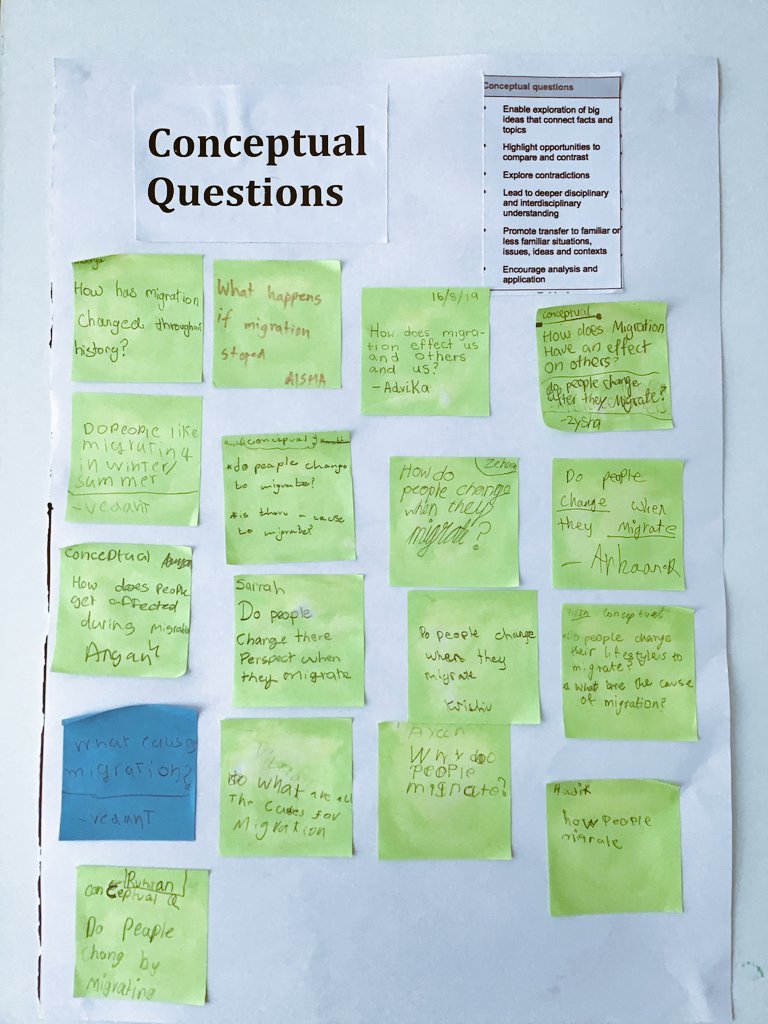 Conceptual
Questions
Conceptual questions
Enable exploration of big
ideas that connect facts and
topics
Highlight opportunities to
compare and contrast
Explore contradictions
Lead to deeper disciplinary
and interdisciplinary
understanding
Promote transfer to familiar or
less familiar situations,
issues, ideas and contexts
Encourage analysis and
application
How has migration
Changed throughout
history?
What happens
if migration
stoped
AISMA
16/8/19
How does migra-
tion effect us
and others
and us?
- Advika
conceptual
How does Migration
Have an effect
on others?
do people change
after they Migrate?
- Zysha
Do PeoPle like
migrating
in winter/
summer
- vedant
conceptual
*do people change
to migrate?
*is there a cause
to migrate?
How do
people change
when they
migrate?
Do people
change when
they migrate
- Arhaan
conceptual
How does people
get affected
during
Aryan
Sarrah
Do people
Change there
Perspect when
they migrate
Do people change
when they
migrate
Krishiv
conceptuel
Do people change
their lifestyles to
migrate?
* What are the cause
of migration?
What causes
migration?
- vedant
What are all
The causes for
Migration
Ayan
Why do
people
migrate?
Hadik
how People
migrate
Ruhaan
conceptual Q
Do People
chang by
migrating